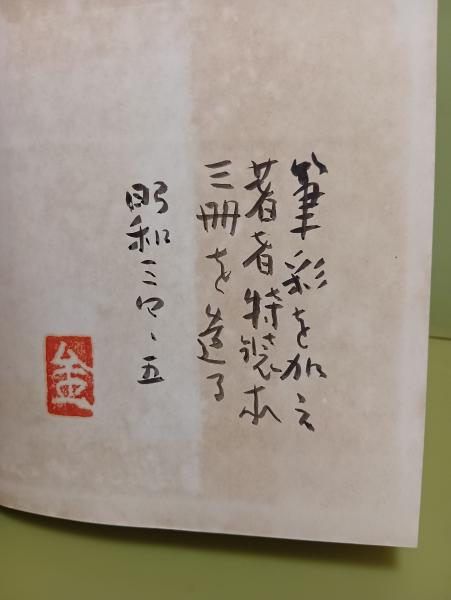 筆彩を加え
著者特製本
三冊を造る
昭和三〇、五
金